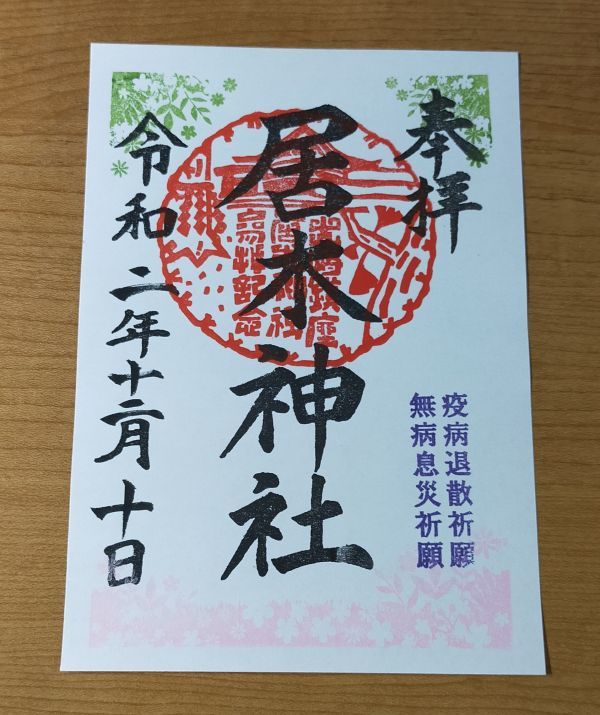 奉拝
居木神社
疫病退散祈願
無病息災祈願
令和二年十二月十日